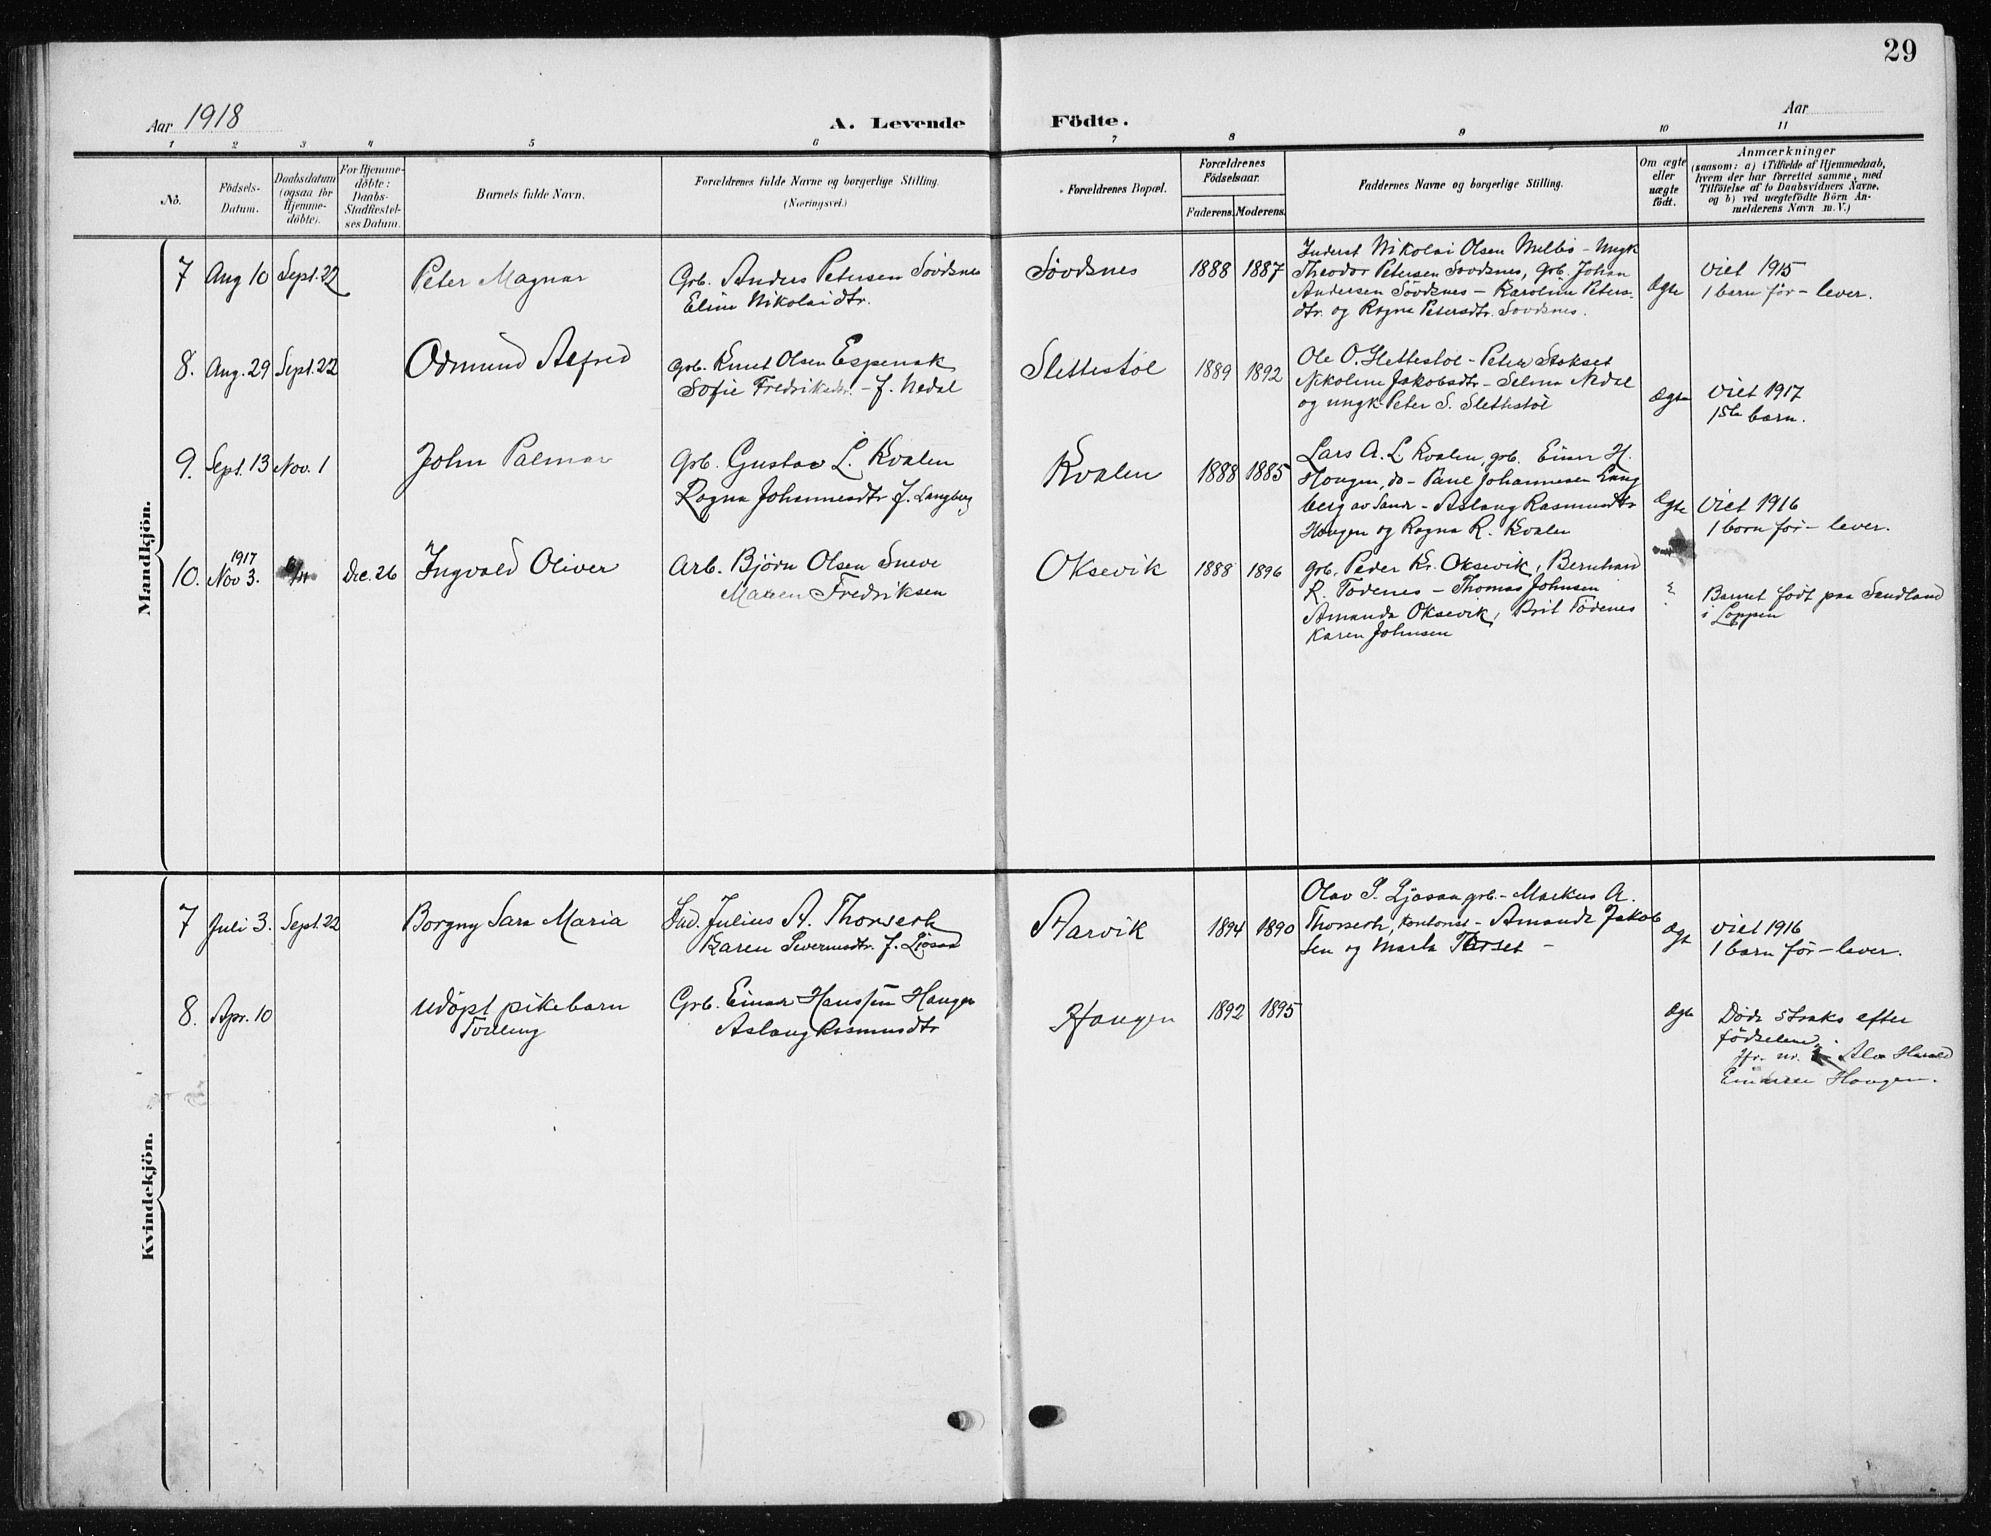 29
Aar 1918
A. Levende Födte.
Aar
1 2 3 4 5 6 7 8 9 10 11
No.
Födsels-
Datum.
Daabsdatum
(ogsaa for
Hjemme-
döbte).
For Hjemme-
döbte:
Daabs-
Stadfæstel-
ses Datum.
Barnets fulde Navn.
Forældrenes fulde Navne og borgerlige Stilling.
(Næringsvei.)
Forældrenes Bopæl.
Forældrenes
Födselsaar.
Faderens.
Moderens.
Faddernes Navne og borgerlige Stilling.
Om ægte
eller
uægte
födt.
Anmærkninger
(saasom: a) i Tilfælde af Hjemmedaab,
hvem der har forrettet samme, med
Tilföielse af to Daabsvidners Navne,
og b) ved uægtefödte Börn An-
melderens Navn m. V.)
Mandkjön.
7 Aug 10 Sept. 22 Peter Magnar
Grb. Anders Petersen Sövdsnes
Eline Nikolaidtr.
Sövdsnes 1888 1887
Inderst Nikolai Olsen Melbö - Ungk
Theodor Petersen Sovdsnes, Grb. Johan
Andersen Sövdsnes - Karoline Peters-
dtr. og Ragna Petersdtr. Sovdsnes.
Ægte
Viet 1915
1 barn før - lever.
8. Aug. 29 Sept. 22 Odmund Alfred
Grb. Knut Olsen Espenak
Sofie Fredriksdtr. - f. Nedal
Slettestöl 1889 1892
Ole O. Slettestöl - Peter Stokset
Nikoline Jakobsdtr - Selma Nedal
og ungk. Peter S. Slettestöl
Ægte
Viet 1917
1ste barn.
9. Sept. 13 Nov. 1 John Palmar
Grb. Gustav L. Kvalen
Ragna Johannesdtr f. Langberg
Kvalen 1888 1885
Lars A. L Kvalen, grb. Einar H.
Hougen, do - Paul Johannesen Lang
berg av Sande - Aslaug Rasmusdtr
Hougen og Ragna R. Kvalen
Ægte
Viet 1916
1 barn før - lever.
10. 1917
Nov 3. Dec. 26 Ingvald Oliver
Arb. Bjørn Olsen Sneve
Maren Fredriksen
Oksevik 1888 1896
grb. Peder Kr. Oksevik, Bernhard
R. Todenes - Thomas Johnsen
Amanda Oksevik, Brit Tödenes
Karen Johnsen
Barnet født paa Sandland
i Loppen
Kvindekjön.
7 Juli 3. Sept. 22 Borgny Sara Maria
Julius A. Thorseth
Karen Sivertsdtr. f. Ljösaa
Aarvik 1894 1890
Olav P. Ljosaa grb - Markus A.
Thorseth, kontorist - Amanda Jakob
sen og Marta Torset -
Ægt
Viet 1916
1 barn før - lever.
8. Apr. 10 Udöpt pikebarn
Tvilling
Grb. Einar Hanssen Hougen
Aslaug Rasmusdtr
Hougen 1892 1895
Ægte
Døde straks efter
födselen.
Jfr. nr. Alv Harald
Einarsen Hougen.